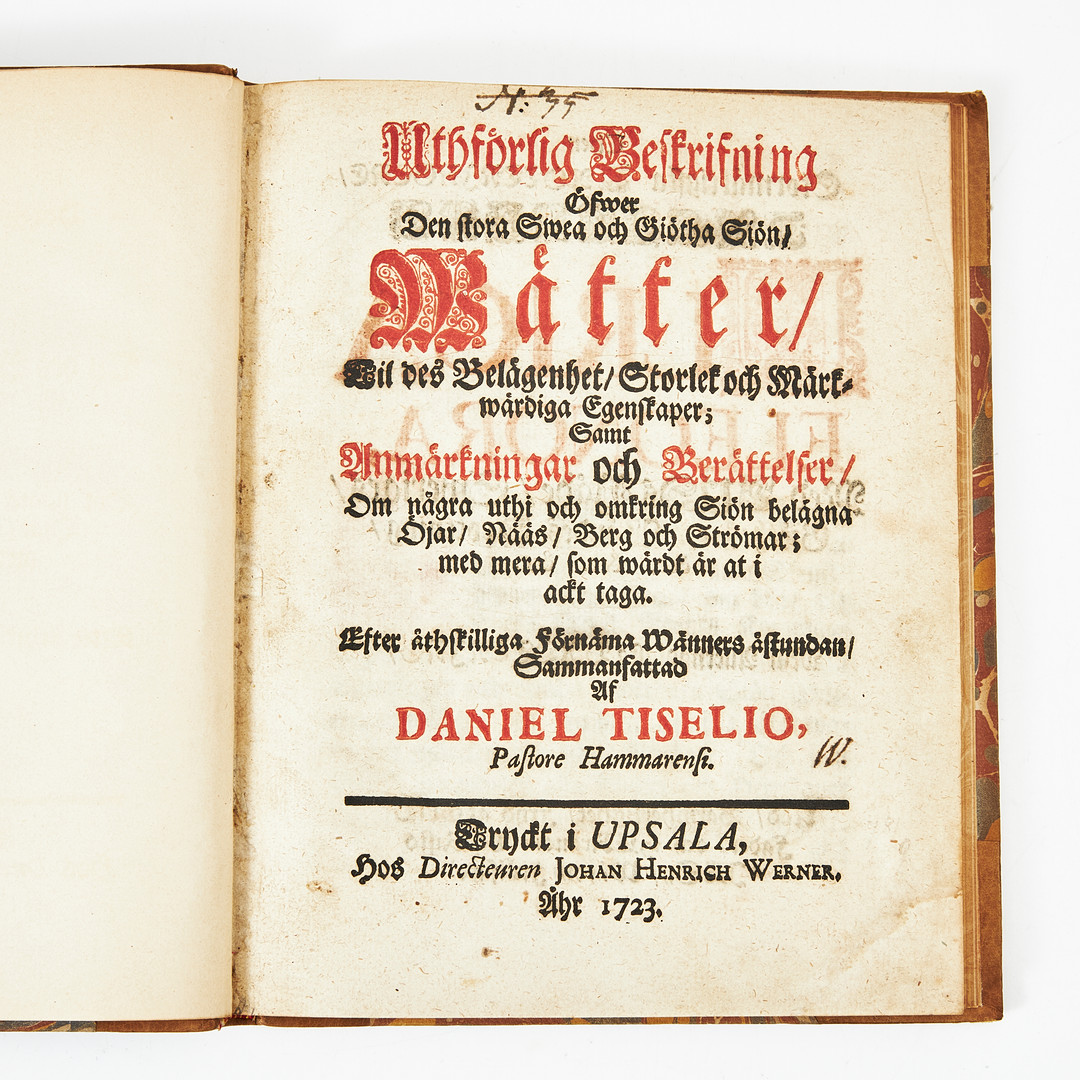 N: 35
Uthförlig Beskrifning
Öfwer
Den stora Swea och Giötha Siön/
Wätter/
Til des Belägenhet/ Storlek och Märk-
wärdiga Egenskaper;
Samt
Anmärkningar och Berättelser/
Om några uthi och omkring Siön belägna
Öjar/ Nääs/ Berg och Strömar;
med mera/ som wärdt är at i
ackt taga.
Efter åthskilliga Förnäma Wänners åstundan/
Sammanfattad
Af
DANIEL TISELIO,
Pastore Hammarensi.
W.
Tryckt i UPSALA,
Hos Directeuren JOHAN HENRICH WERNER.
Åhr 1723.